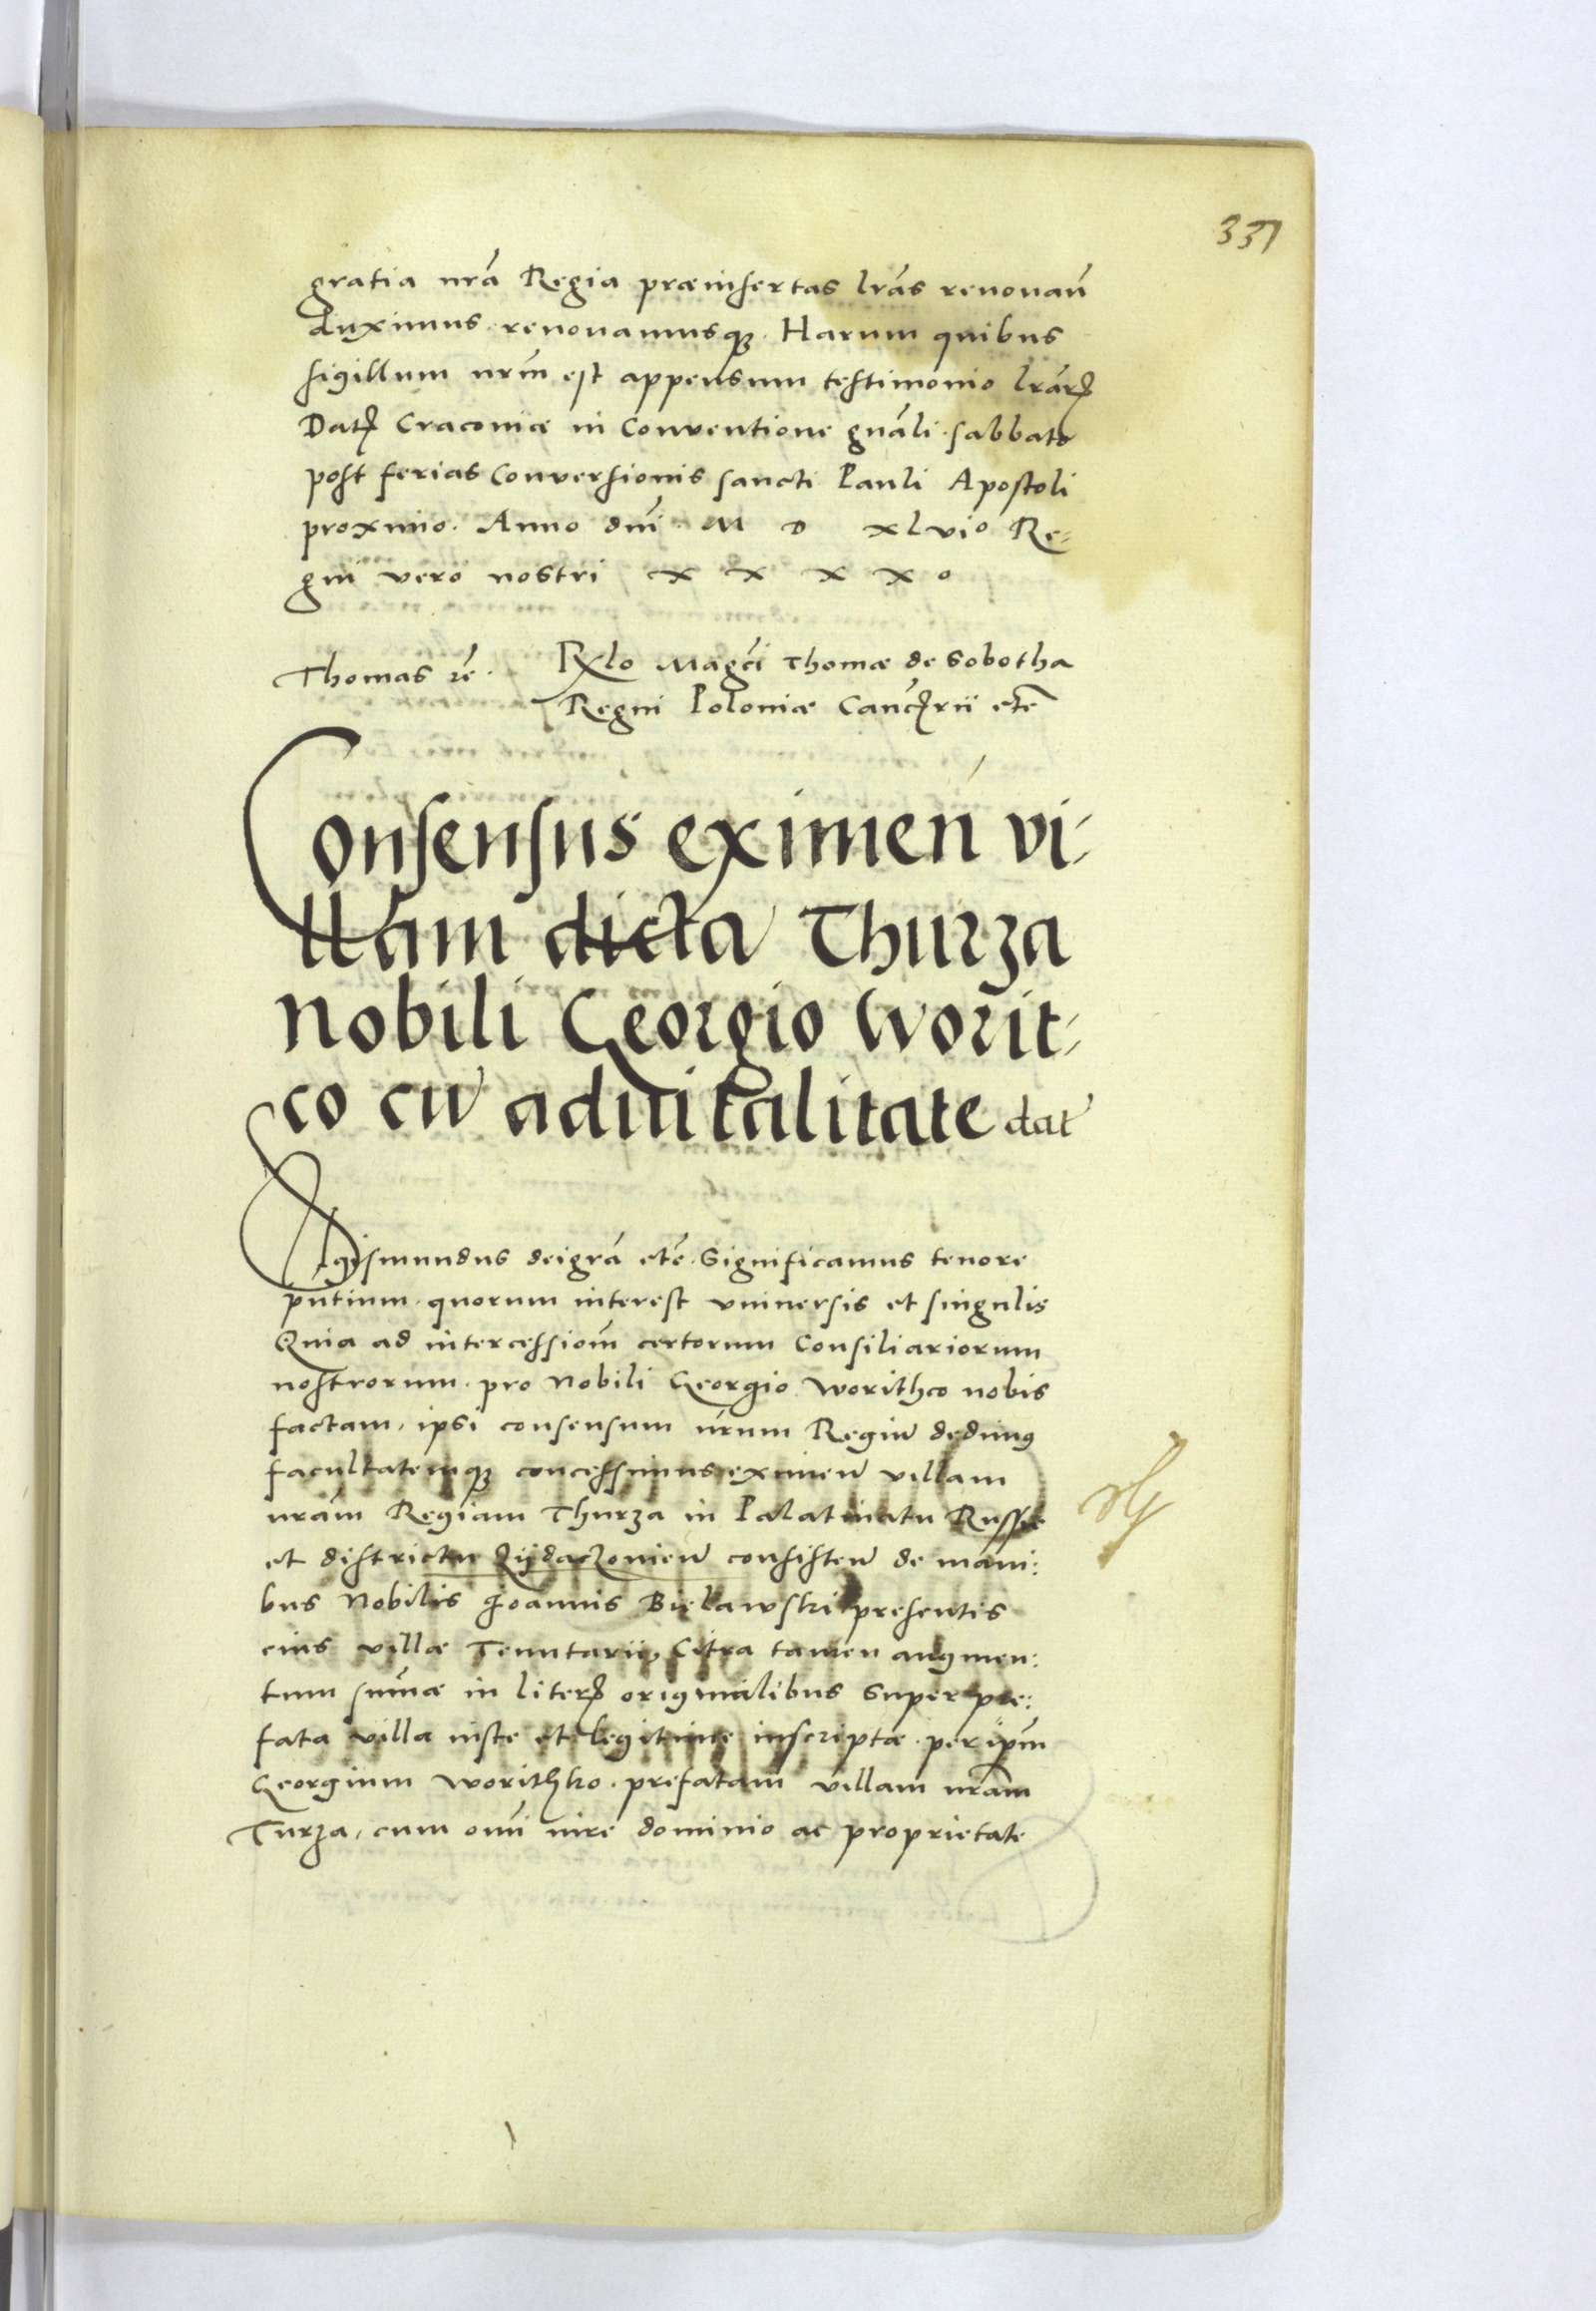 331
gratia nrã Regia præinsertas lrãs renouañ
duximus. renouamusq₃. Harum quibus
sigillum nrm̃ est appensum testimonio lrãrꝫ
Datꝫ Cracouiæ in Conuentione gnãli. sabbato
post ferias Conuersionis sancti Pauli Apostoli
proximo. Anno dni. M D xlvio Re-
gni vero nostri X X X X o
Thomas rẽ. Rlo Magci Thomæ de Sobotha
Regni Poloniæ Cancꝫrii etc̃
Consensus eximen̄ vi-
llam dicta Thurza
nobili Georgio worit-
co cū aduitalitate dat̄
Sigismundus deigrã etc̃. Significamus tenore
pñtium. quorum interest vniuersis et singulis
Quia ad intercessiom̃ certorum Consiliariorum
nostrorum. pro Nobili Georgio Worithco nobis
factam, ipsi consensum nrum Regiū dedimꝰ
facultatemq₃ concessimus eximeñ villam
nrãm Regiam Thurza in Palatinatu Russiæ
et districtu Zijdaczouieñ consisteñ de mani:
bus Nobilis Joannis Bielawski presentis
eius villæ Tenutarii, Citra tamen augmen:
tum sum̃æ in literꝫ originalibus super pre:
fata villa iuste et legitime inscriptæ. per ipm̃
Georgium Worithko. prefatam villam nrãm
Turza, cum omi iure dominio ac proprietate